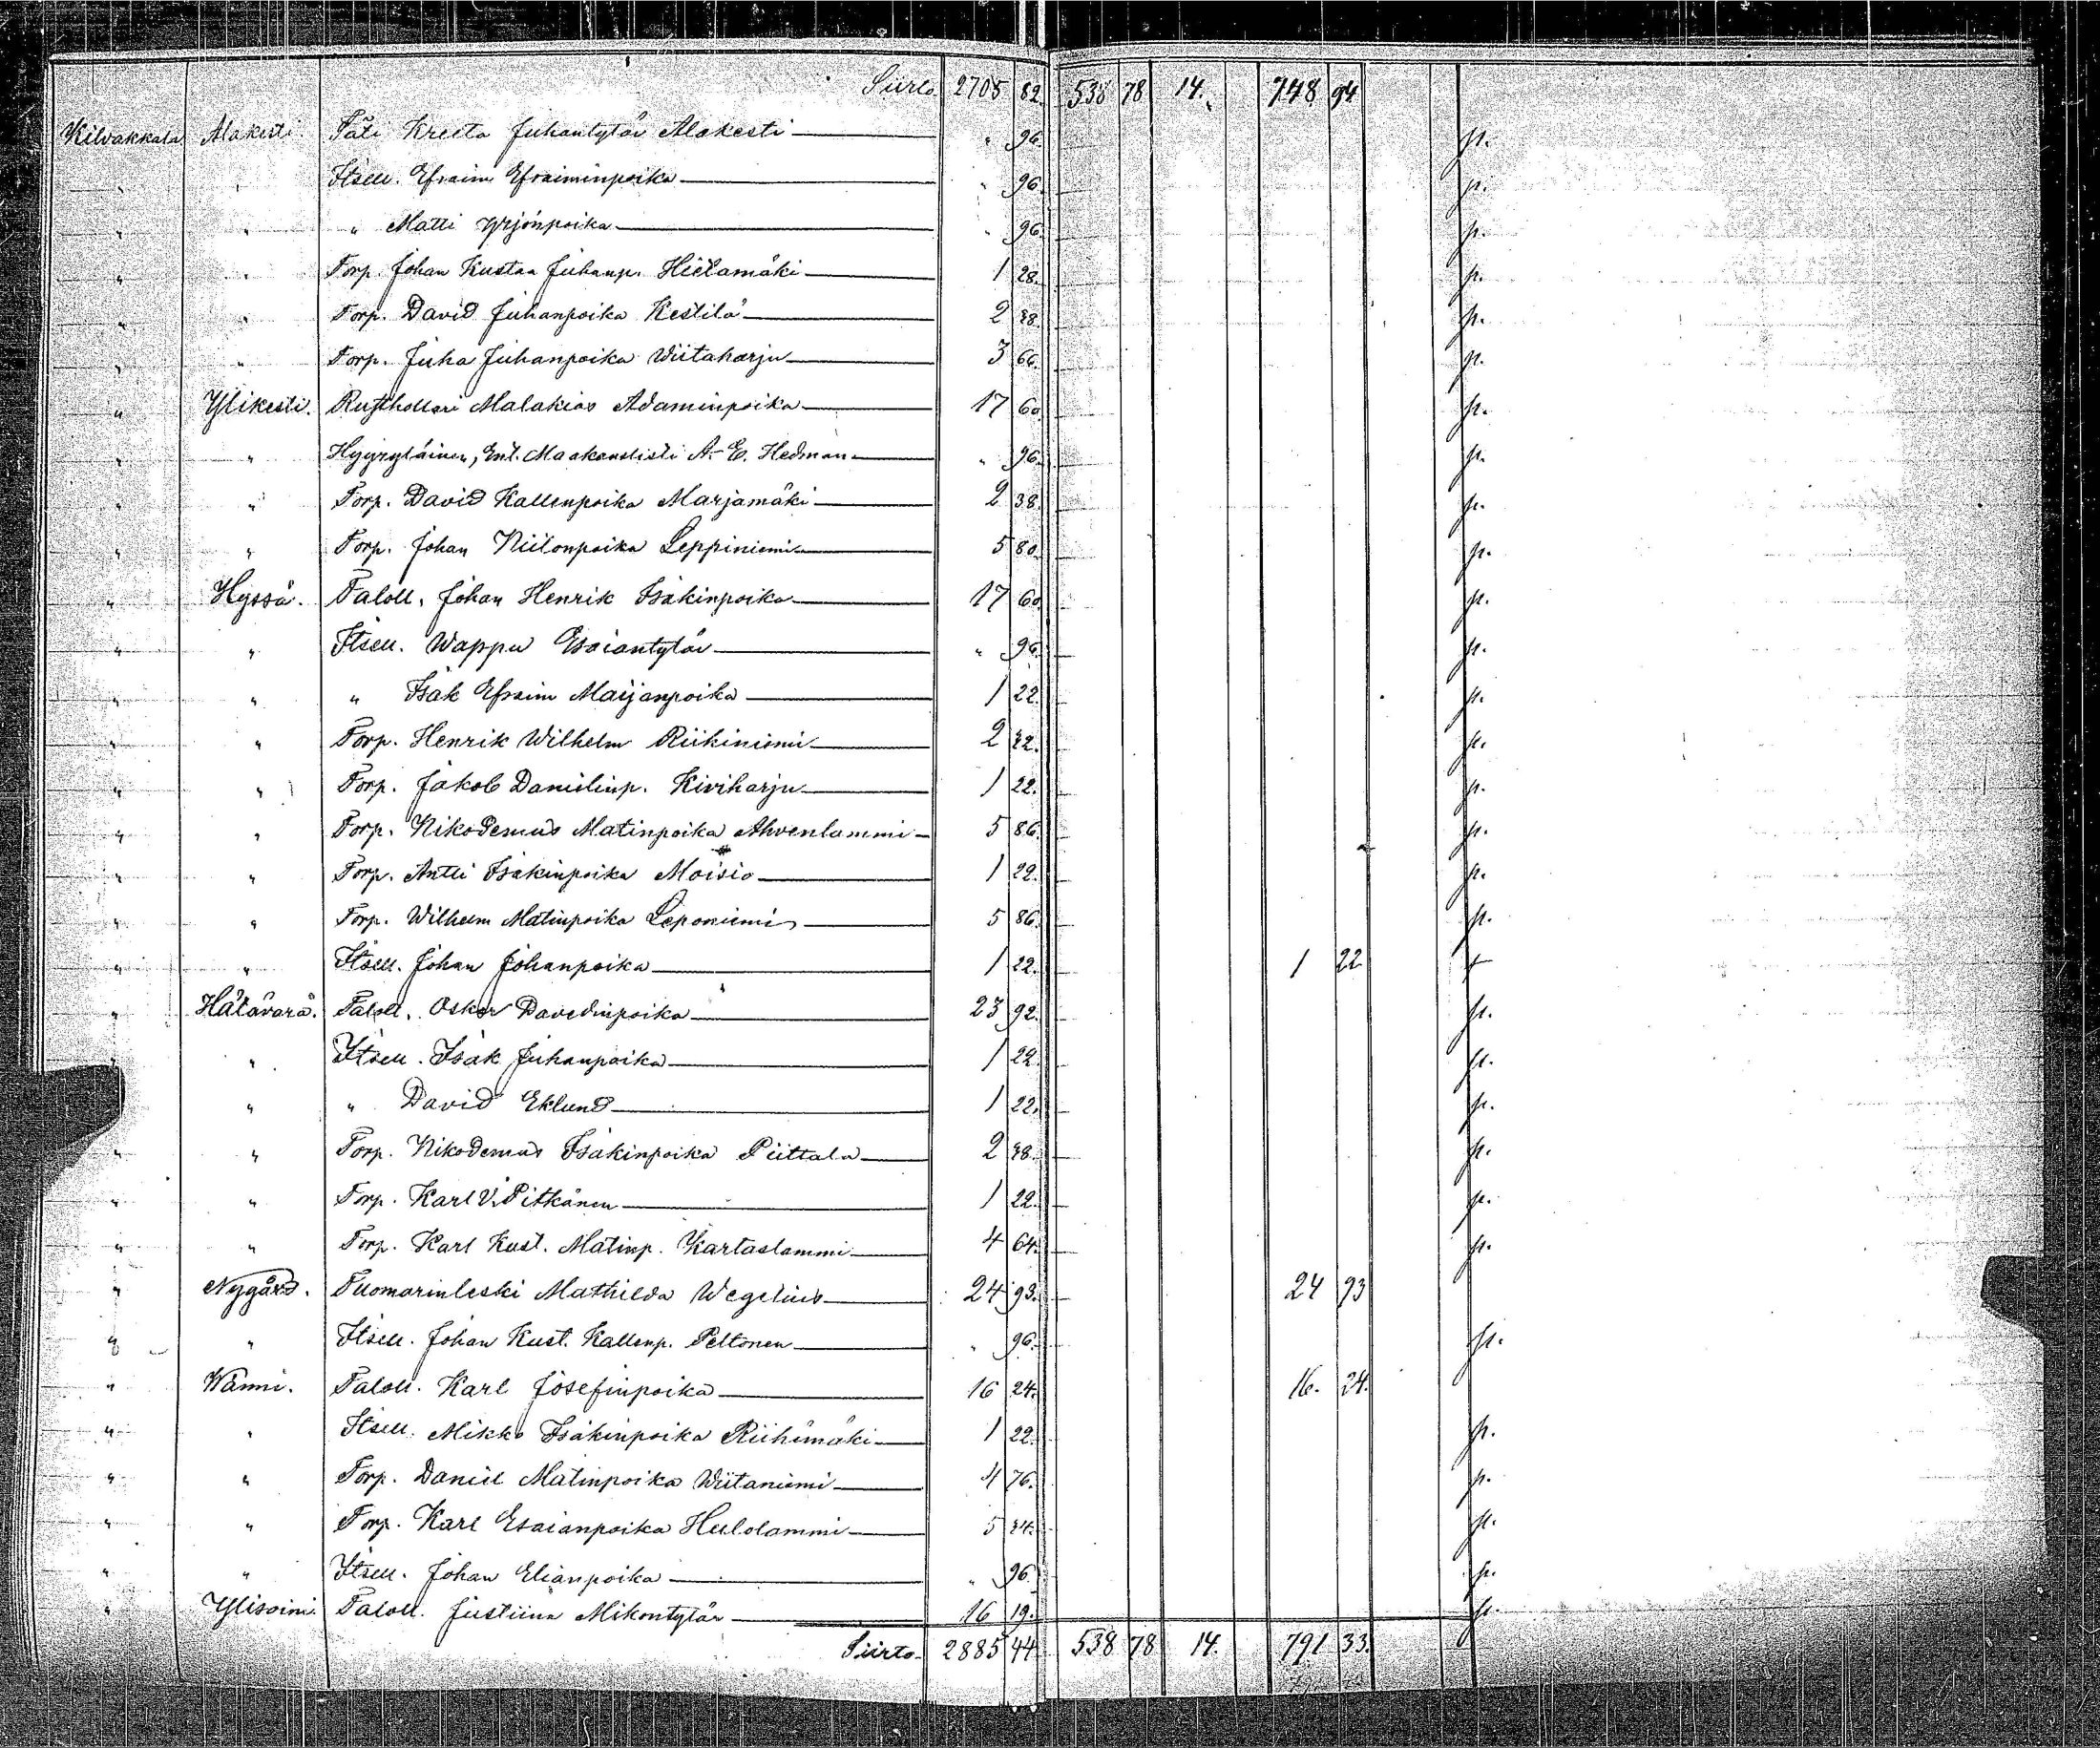 Siirto 2705 82. 538 78 14. 748 94
Kilvakkala Alakesti Täti Kreeta Juhantytär Alakesti " 96. pr.
" " Itsell. Efraim Efraiminpoika " 96. pr.
" " " Matti Yrjönpoika " 96. pr.
" " Torp. Johan Kustaa Juhanp. Hietamäki 1 28. pr.
" " Torp. David Juhanpoika Kestilä 2 38. pr.
" " Torp. Juha Juhanpoika Wiitaharju 3 66. pr.
" Ylikesti. Rusthollari Malakias Adaminpoika 17 60. pr.
" " Hyyryläinen, Ent. Maakauslisti A. E. Hedman " 96. pr.
" " Torp. David Kallenpoika Marjamäki 2 38. pr.
" " Torp. Johan Niilonpoika Leppiniemi 5 80. pr.
" Hyssä. Taloll. Johan Henrik Isakinpoika 17 60. pr.
" " Itsell. Wappu Esaiantytär " 96. pr.
" " " Isak Efraim Maijanpoika 1 22. pr.
" " Torp. Henrik Wilhelm Riikiniemi 2 22. pr.
" " Torp. Jakob Danielinp. Kiviharju 1 22. pr.
" " Torp. Nikodemus Matinpoika Ahvenlammi 5 86. pr.
" " Torp. Antti Isakinpoika Moisio 1 22. pr.
" " Torp. Wilhelm Matinpoika Leponiemi 5 86. pr.
" " Itsell. Johan Johanpoika 1 22. 1 22
" Hätävarä. Taloll. Oskar Davidinpoika 23 92. pr.
" " Itsell. Isak Juhanpoika 1 22. pr.
" " " David Eklund 1 22. pr.
" " Torp. Nikodemus Isakinpoika Piittala 2 38. pr.
" " Torp. Karl V. Pitkänen 1 22. pr.
" " Torp. Karl Kust. Matinp. Kartaslammi 4 64. pr.
" Nygård. Tuomarinleski Mathilda Wegelius 24 93. 24 93
" " Itsell. Johan Kust. Kallenp. Peltonen " 96. pr.
" Wänni. Taloll. Karl Josefinpoika 16 24. 16. 24.
" " Itsell. Mikko Isakinpoika Riihimäki 1 22. pr.
" " Torp. Daniel Matinpoika Wiitaniemi 4 76. pr.
" " Torp. Karl Esaianpoika Hulolammi 5 24. pr.
" " Itsell. Johan Elianpoika " 96. pr.
" Ylisoini. Taloll. Justiina Mikontytär 16 19. pr.
Siirto 2885 44. 538 78 14. 791 33.